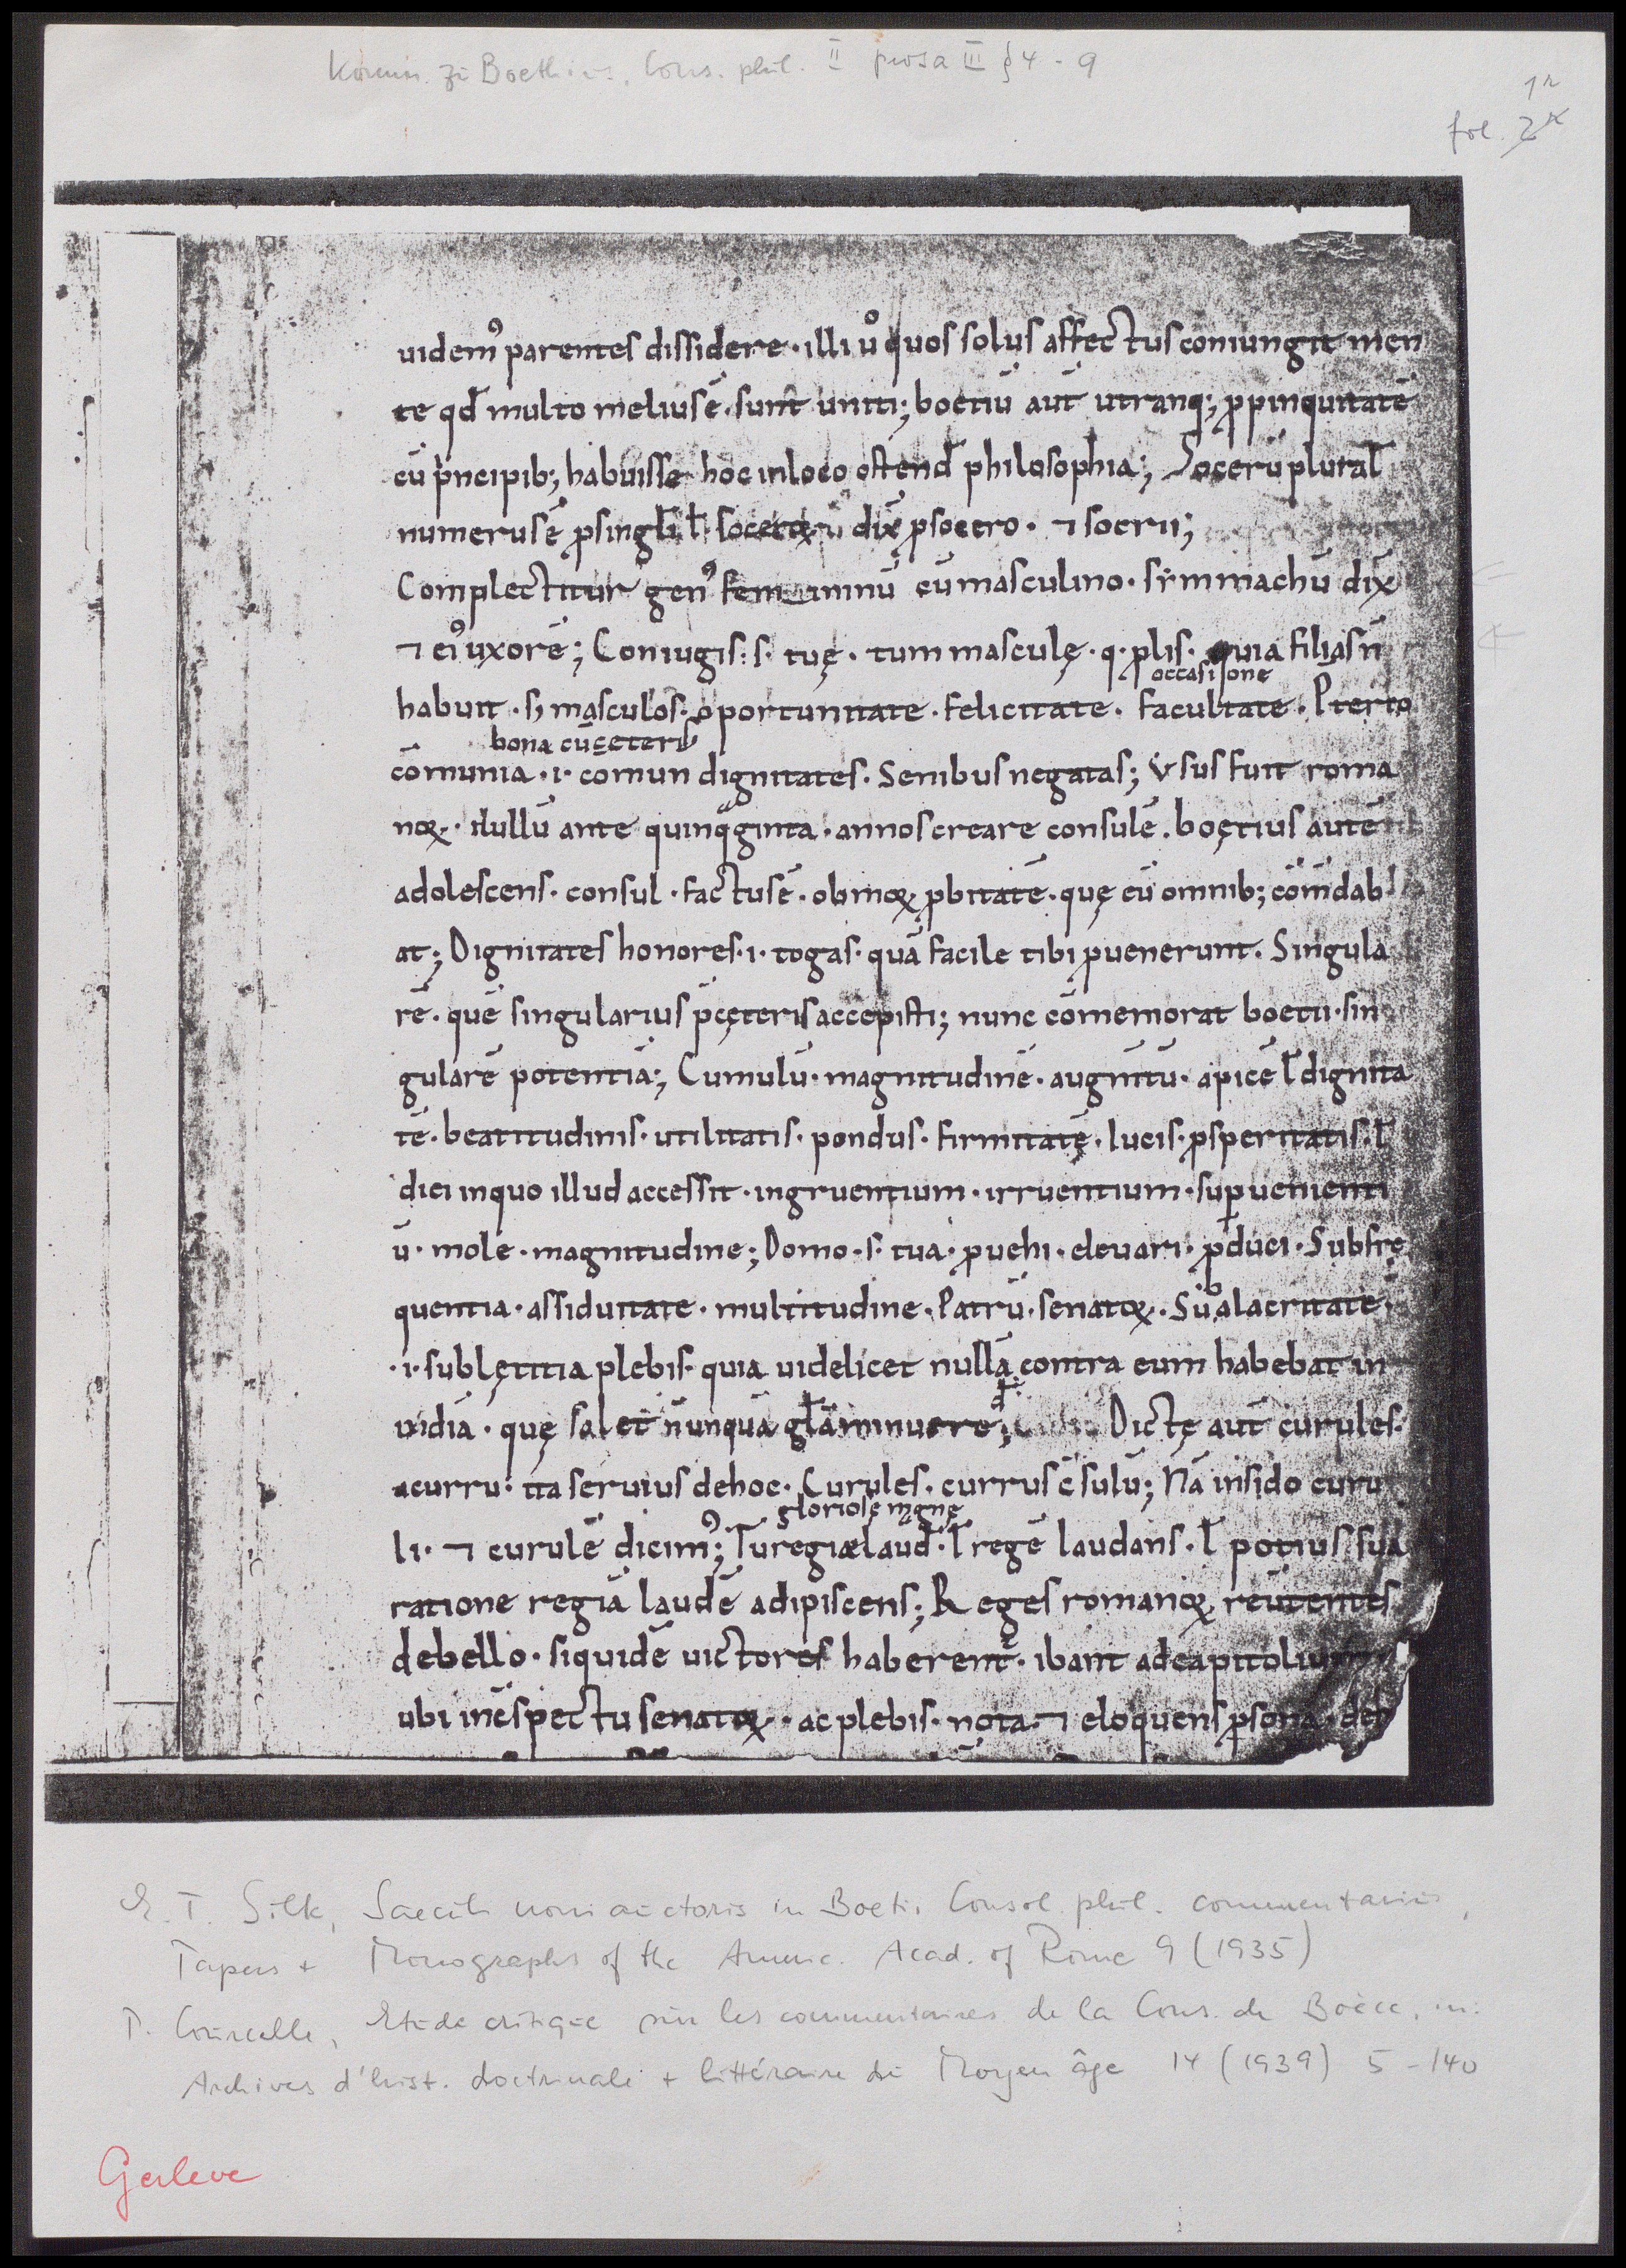 Komm. zu Boethius, Cons. phil. II prosa III § 4 - 9
1r
fol. 2r
uidem᾽ parentes dissidere · illi u͛o quos solus affectus coniungit men
te qđ multo melius ē · sunt uniti; boetiū aut̄ utranq; ꝓpinquitatē
cū prıncipib; habuisse hoc inloco ostend̄ philosophia; Socerū plural̄
numerus ē ꝓ singł̄i ł soceroꝝ ū dix̄ ꝓ socero · ⁊ socrii;
Complectitur gen᾽ femininnū cū masculino · sẏmmachū dix̄
⁊ ei᾽ uxorē; Coniugis · s · tuę · tum masculę · q · ꝓlis · quia filias n̄
occasione
habuit · sꝫ masculos · oportunitate · felicitate · facultate · P̄terto
bona cū ceteris
cōmunia · i · cōmun dignitates · Senibus negatas; Vsus fuit roma
noꝝ · Nullū ante quinquaginta · annos creare consulē · boętius autē
adolescens · consul · factus ē · ob moꝝ ꝓbitatē · quę cū omnib; cōmdab
at; Dignitates honores · i · togas · quā facile tibi ꝑuenerunt · Singula
rē · quē singularius p̄cęteris accepisti; nunc cōmemorat boetii · sin
gularē potentiā; Cumulū · magnitudinē · augm̄tū · apicē ł dignita
tē · beatitudinis · utilitatis · pondus · firmitatę · lucis · ꝓsperitatis · ł
diei inquo illud accessit · ingruentium · irruentium · suꝑuenienti
ū · mole · magnitudine; Domo · s · tua · ꝓuehi · eleuari · ꝓduci · Subfre
quentia · assiduitate · multitudine · Patrū · senatoꝝ · Sub alacritate ·
· i · sub lętitia plebis · quia uidelicet nullā contra eum habebat in
uidiā · quę solet nunquā gł̄ā minuere; Dictę aut̄ curules ·
acurru · ita seruius dehoc · Curules · currus c̄sulū; Nā insido curu
gloriosę mgnę
li · ⁊ curulē dicim᾽; Tu regiæ laud̄ · ł regē laudans · ł potius sua
ratione regiā laudē adipiscens; Reges romanoꝝ reūtentes
debello · siquidē uictores haberent̄ · ibant ad capitolium
ubi inc̄spectu senatoꝝ · ac plebis · nota ⁊ eloquens ꝑsona · deb
E. T. Silk, Saeculi noni auctoris in Boetii Consol. phil. commentarius,
Papers + Monographs of the Americ. Acad. of Rome 9 (1935)
P. Courcelle, Etude critique sur les commentaires de la Cons. de Boèce, in:
Archives d'hist. doctrinale + littéraire du Moyen âge 14 (1939) 5 - 140
Gerleve